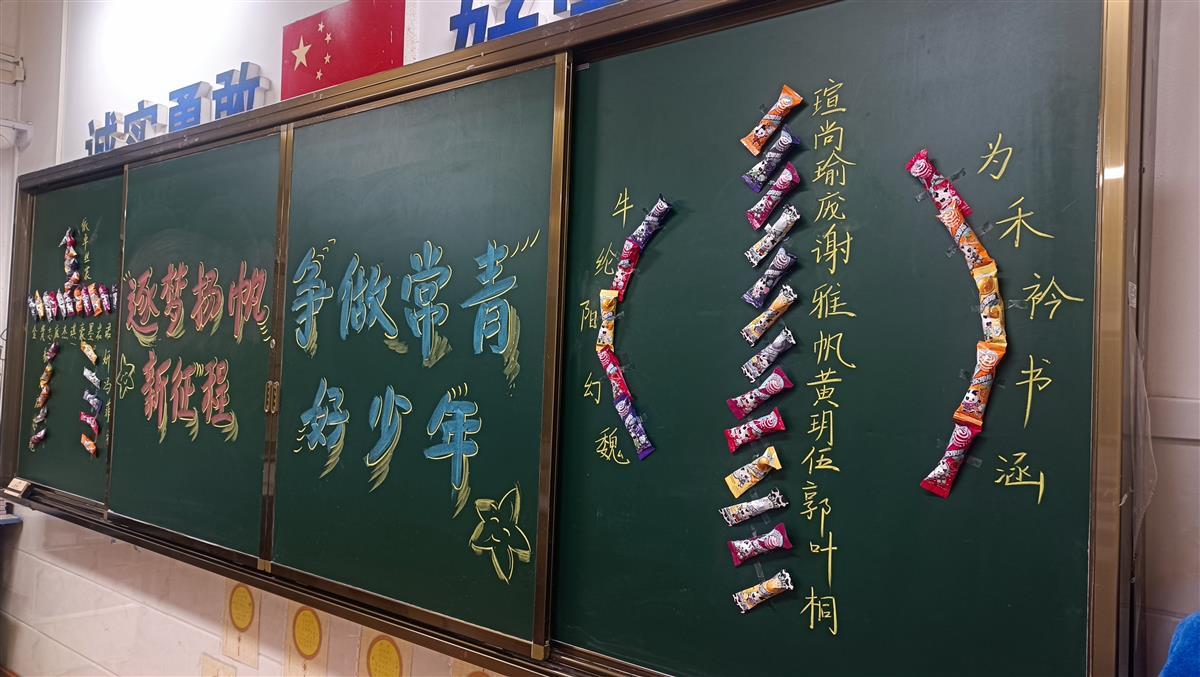 诚实勇敢
好
"逐梦扬帆
新征程
"争做常青"
好少年
牛纶阳幻魏
瑄尚瑜庞谢雅帆黄玥伍郭叶桐
为禾衿书涵